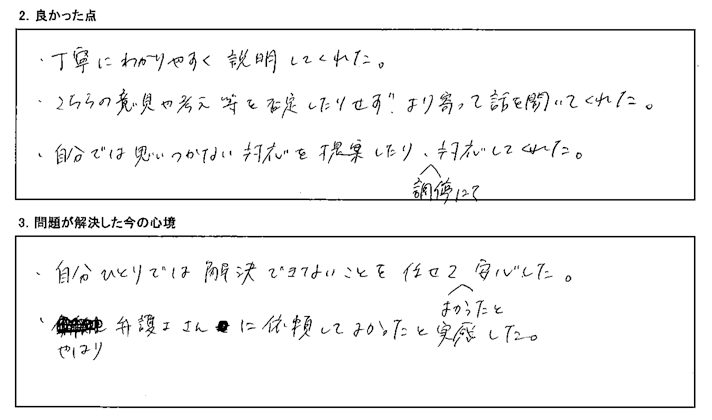 2. 良かった点
・丁寧にわかりやすく説明してくれた。
・こちらの意見や考え等を否定したりせず、より寄って話を聞いてくれた。
・自分では思いつかない対応を提案したり、対応してくれた。
調停にて
3. 問題が解決した今の心境
・自分ひとりでは解決できないことを任せて安心した。
よかったと
・弁護士さんに依頼してよかったと実感した。
やはり